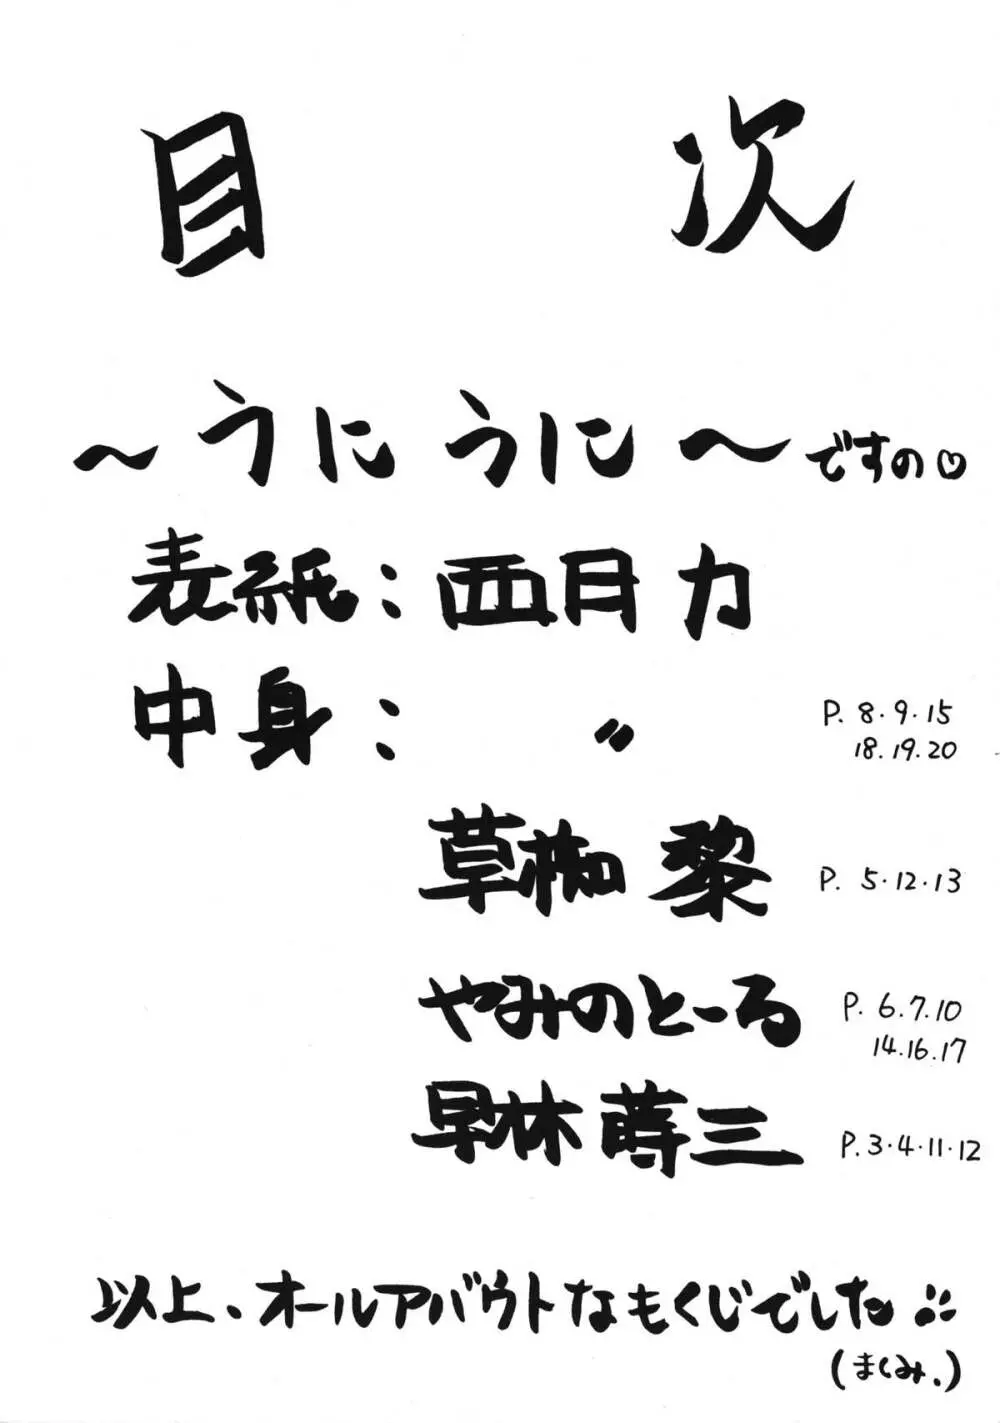 目 次
～うにうに～ですの♡
表紙:西月力
中身: 〃 P. 8・9・15
18.19.20
草枷 黎 P. 5・12・13
やみのとーる P. 6.7.10
14.16.17
早林蒔三 P.3・4・11・12
以上、オールアバウトなもくじでした